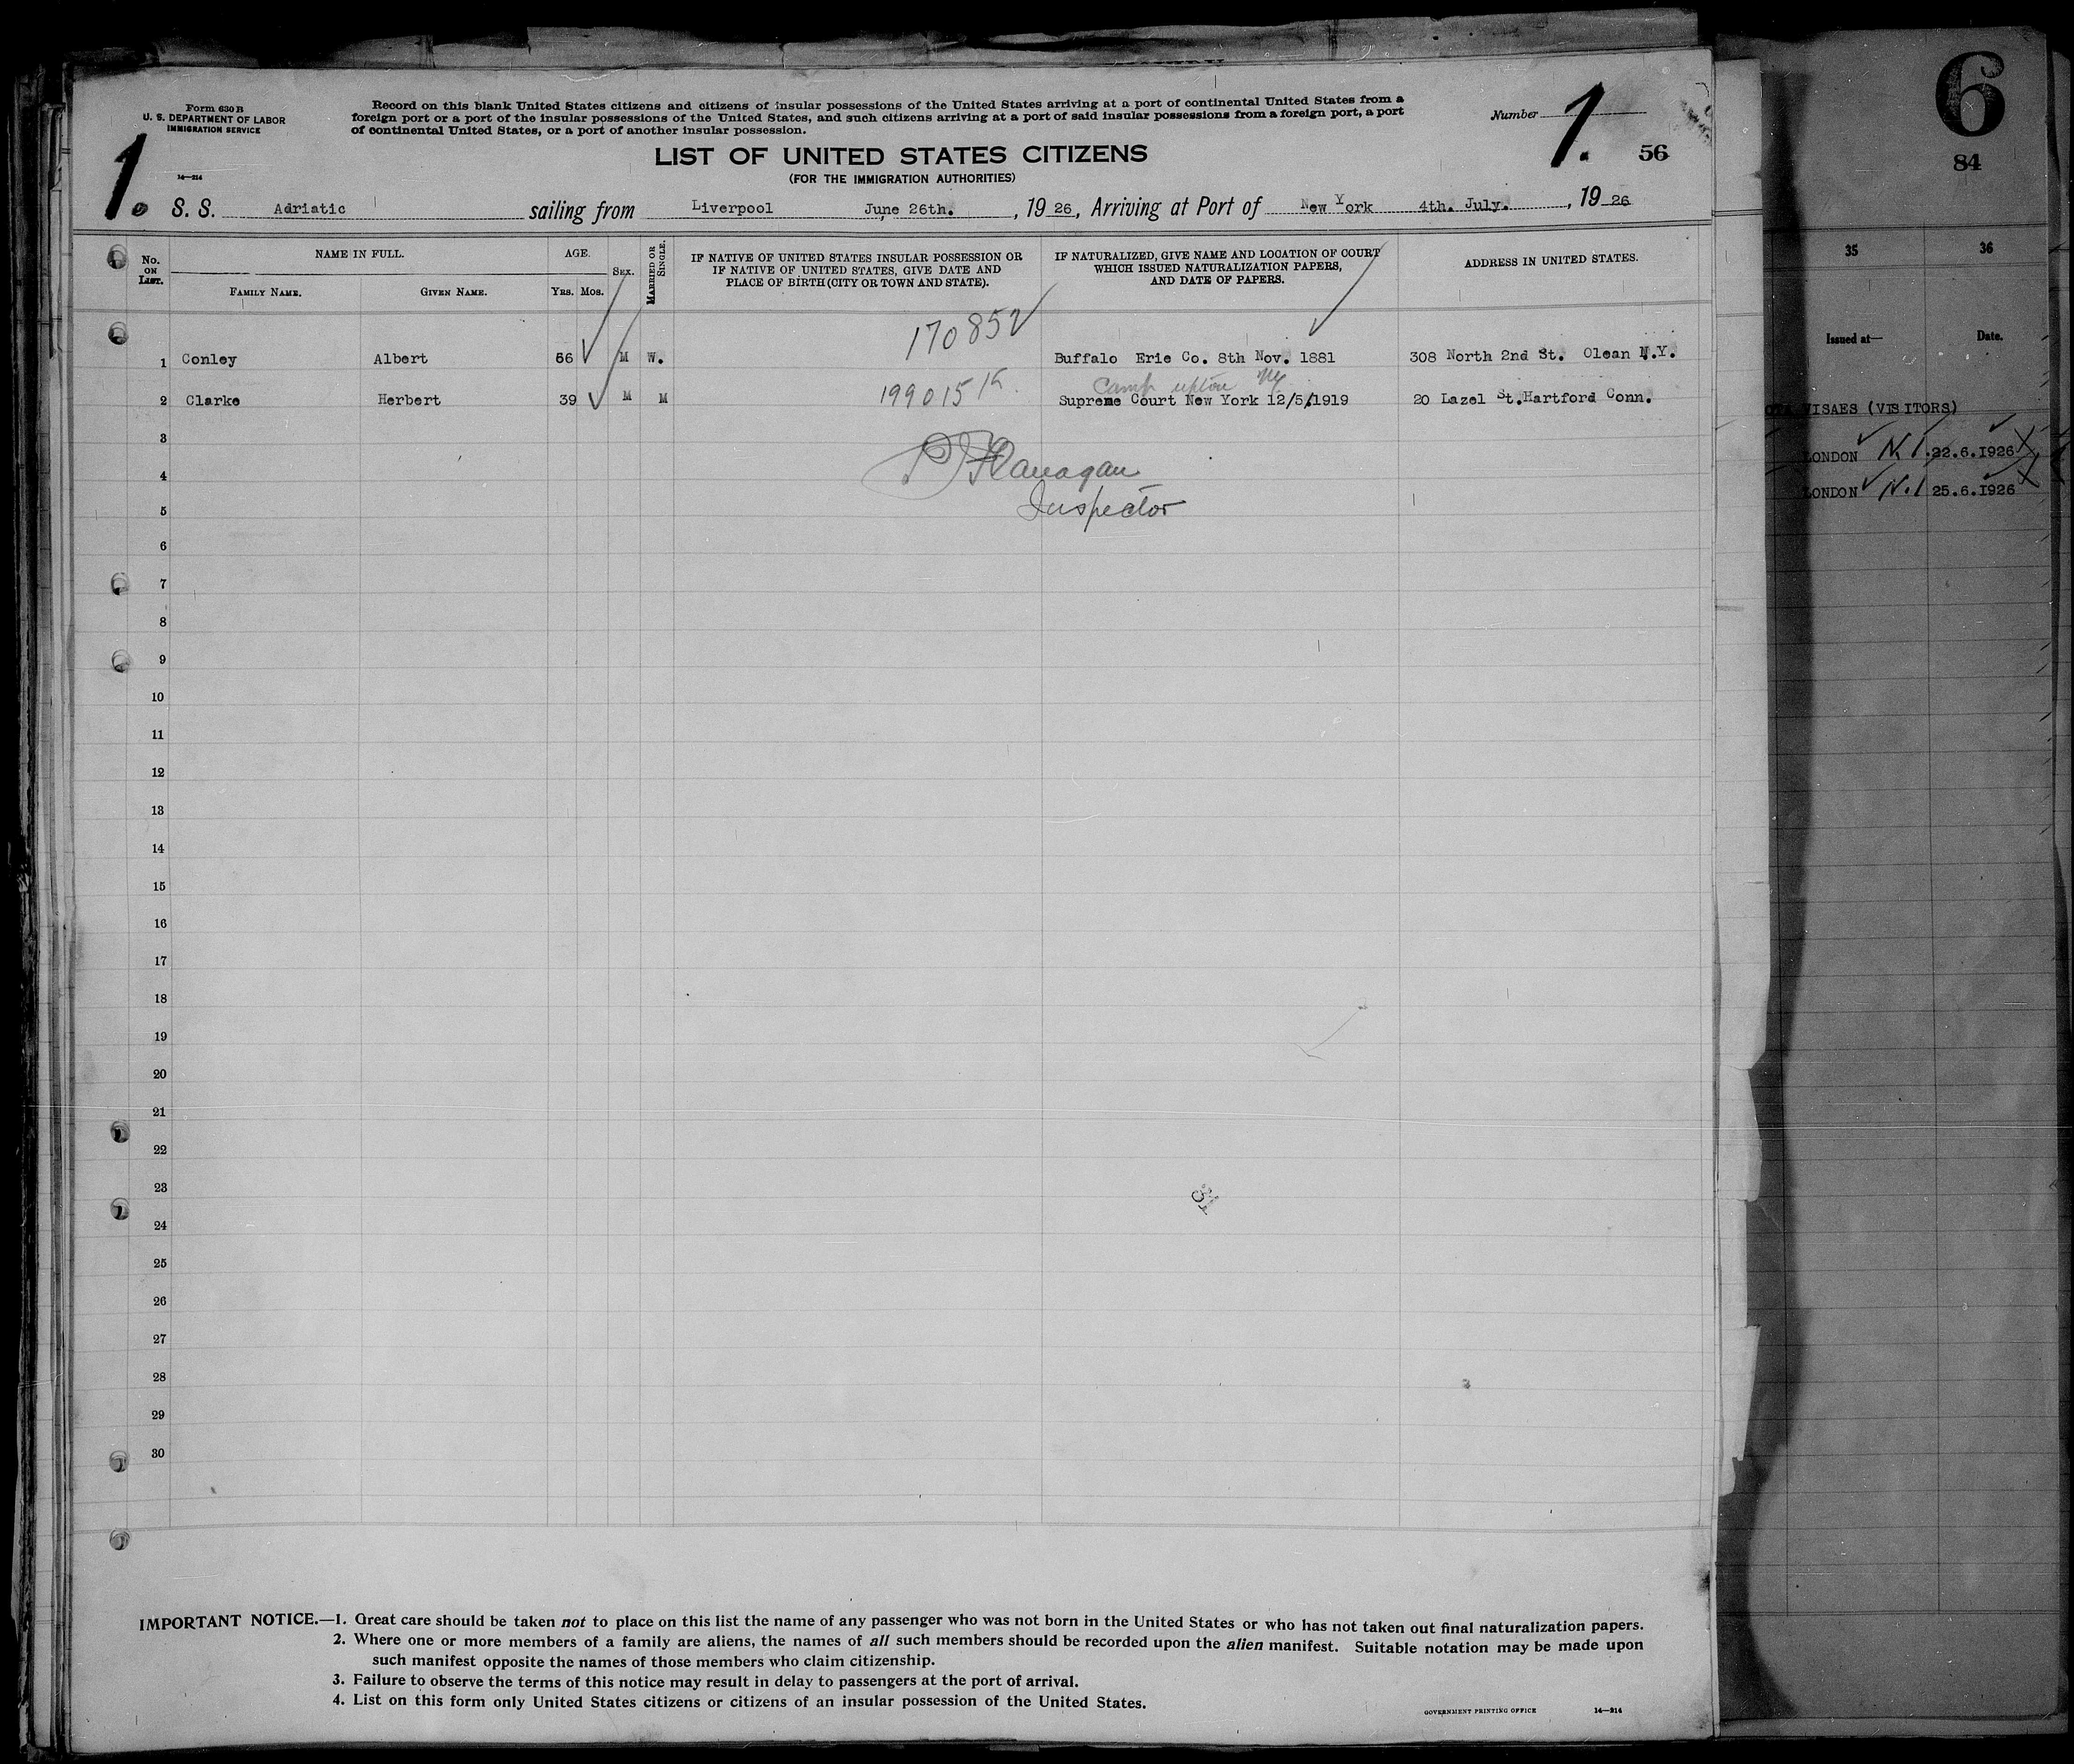 Form 630 B
U. S. DEPARTMENT OF LABOR
IMMIGRATION SERVICE
14—214
Record on this blank United States citizens and citizens of insular possessions of the United States arriving at a port of continental United States from a
foreign port or a port of the insular possessions of the United States, and such citizens arriving at a port of said insular possessions from a foreign port, a port
of continental United States, or a port of another insular possession.
Number 1.
56
LIST OF UNITED STATES CITIZENS
(FOR THE IMMIGRATION AUTHORITIES)
1. S. S. Adriatic sailing from Liverpool June 26th. , 19 26 , Arriving at Port of New York 4th. July. , 19 26
No. ON LIST. NAME IN FULL. AGE. SEX. MARRIED OR SINGLE. IF NATIVE OF UNITED STATES INSULAR POSSESSION OR IF NATIVE OF UNITED STATES, GIVE DATE AND PLACE OF BIRTH (CITY OR TOWN AND STATE). IF NATURALIZED, GIVE NAME AND LOCATION OF COURT WHICH ISSUED NATURALIZATION PAPERS, AND DATE OF PAPERS. ADDRESS IN UNITED STATES.
FAMILY NAME. GIVEN NAME. YRS. MOS.
170852
1 Conley Albert 66 M W. Buffalo Erie Co. 8th Nov. 1881 308 North 2nd St. Olean N.Y.
Camp Upton NY
2 Clarke Herbert 39 M M 199015 Supreme Court New York 12/5/1919 20 Lazel St. Hartford Conn.
3
P J Flanagan
4
Inspector
5
6
7
8
9
10
11
12
13
14
15
16
17
18
19
20
21
22
23
31
24
25
26
27
28
29
30
IMPORTANT NOTICE.—1. Great care should be taken not to place on this list the name of any passenger who was not born in the United States or who has not taken out final naturalization papers.
2. Where one or more members of a family are aliens, the names of all such members should be recorded upon the alien manifest. Suitable notation may be made upon
such manifest opposite the names of those members who claim citizenship.
3. Failure to observe the terms of this notice may result in delay to passengers at the port of arrival.
4. List on this form only United States citizens or citizens of an insular possession of the United States.
GOVERNMENT PRINTING OFFICE 14—214
6
84
35 36
Issued at— Date.
VISAES (VISITORS)
LONDON N.1. 22.6.1926
LONDON N.1 25.6.1926